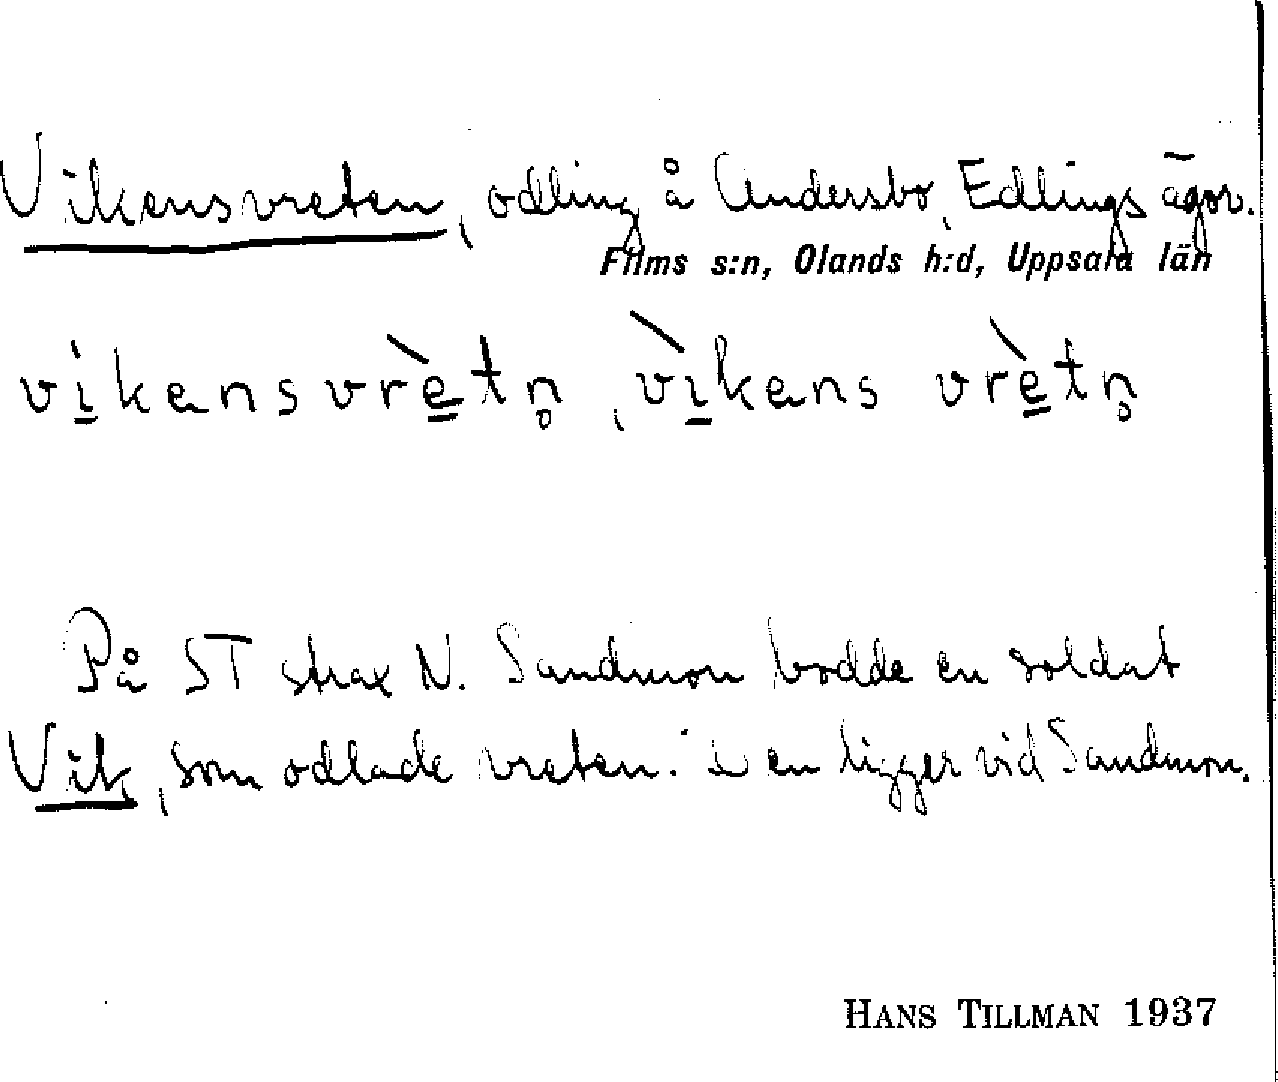 Vikensvreten, odling å Andersbo, Edlings ägor.
Films s:n, Olands h:d, Uppsala län
vi̱kensvrè̳tn̥, vì̱kens vrè̳tn̥
På ST strax N. Sandmon bodde en soldat
Vik, som odlade vreten. Den ligger vid Sandmon.
HANS TILLMAN 1937